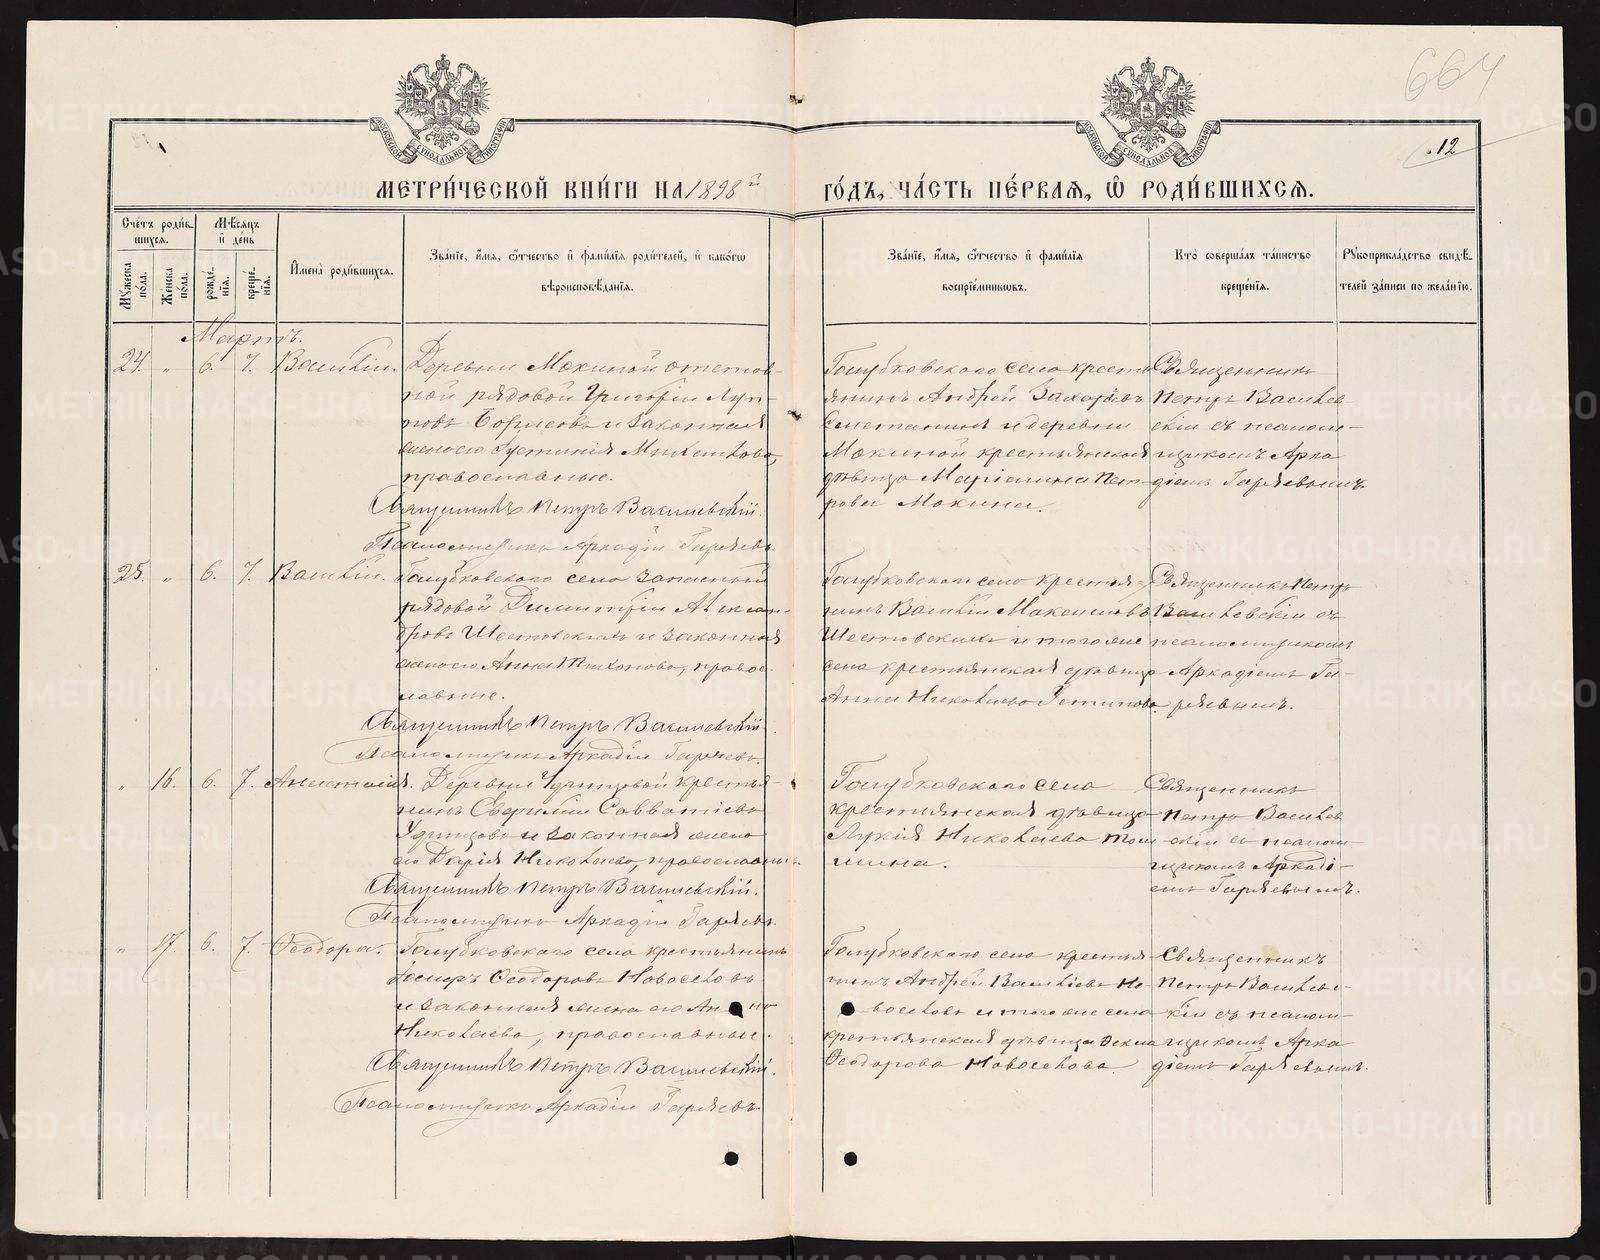 664
12
МЕТРИ́ЧЕСКОЙ КНИ́ГИ НА 1898 й ГО́ДЪ, ЧА́СТЬ ПЕ́РВАЯ, Ѡ РОДИ́ВШИХСЯ.
Сче́тъ роди́вшихся.
Мѣ́сяцъ и де́нь
Имена̀ роди́вшихся.
Зва́нїе, и́мя, ѻ́тчество и фами́лїя роди́телей, и како́гѡ
вѣроисповѣ́данїя.
Зва́нїе, и́мя, ѻ́тчество и фами́лїя
воспрїе́мниковъ.
Кто̀ соверша́лъ та́инство
креще́нїя.
Рꙋкоприкла́дство свидѣ́-
телей за́писи по жела́нїю.
Мꙋ́жеска по́ла.
Же́нска по́ла.
рожде́нїя.
креще́нїя.
Мартъ.
24. " 6. 7. Василій.
Деревни Мокиной отстав-
ной рядовой Григорій Луп-
повъ Борисовъ и законная
жена его Іустинія Михайлова,
православные.
Священникъ Петръ Василевскій.
Псаломщикъ Аркадій Гаряевъ.
Голубковскаго села кресть
янинъ Андрей Захаровъ
Сметанинъ и деревни
Мокиной крестьянская
дѣвица Маріамна Пет-
рова Мокина.
Священникъ
Петръ Василев-
скій съ псалом-
щикомъ Арка
діемъ Гаряевымъ.
25. " 6. 7. Василій.
Голубковскаго села запасный
рядовой Димитрій Алексан-
дровъ Шестовскихъ и законная
жена его Анна Тихонова, право-
славные.
Священникъ Петръ Василевскій.
Псаломщикъ Аркадій Гаряевъ.
Голубковскаго села крестья-
нинъ Василій Максимовъ
Шестовскихъ и того же
села крестьянская дѣвица
Анна Николаева Устинова.
Священникъ Петръ
Василевскій съ
псаломщикомъ
Аркадіемъ Га-
ряевымъ.
" 16. 6. 7. Анастасія.
Деревни Удинцовой крестья-
нинъ Евфимій Савватіевъ
Удинцовъ и законная жена
его Дарія Николаева, православные.
Священникъ Петръ Василевскій.
Псаломщикъ Аркадій Гаряевъ.
Голубковскаго села
крестьянская дѣвица
Лукія Николаева Том
шина.
Священникъ
Петръ Василев
скій съ псалом-
щикомъ Аркаді-
емъ Гаряевымъ.
" 17. 6. 7. Ѳеодора.
Голубковскаго села крестьянинъ
Іосифъ Ѳеодоровъ Новоселовъ
и законная жена его Анна
Николаева, православные.
Священникъ Петръ Василевскій.
Псаломщикъ Аркадій Гаряевъ.
Голубковскаго села крестья
нинъ Андрей Василіевъ Но-
воселовъ и того же села
крестьянская дѣвица Ѳекла
Ѳеодорова Новоселова.
Священникъ
Петръ Василевс-
кій съ псалом-
щикомъ Арка
діемъ Гаряевымъ.
METRIKI.GASO-URAL.RU